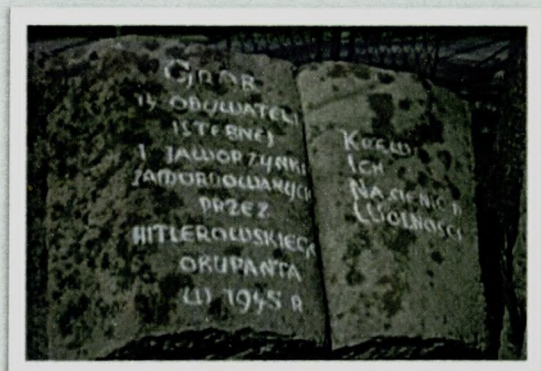 GRÓB
14 OBYWATELI
ISTEBNEJ
I JAWORZYNKI
ZAMORDOWANYCH
PRZEZ
HITLEROWSKIEGO
OKUPANTA
W 1945 R
KREW
ICH
NASIENIEM
WOLNOŚCI